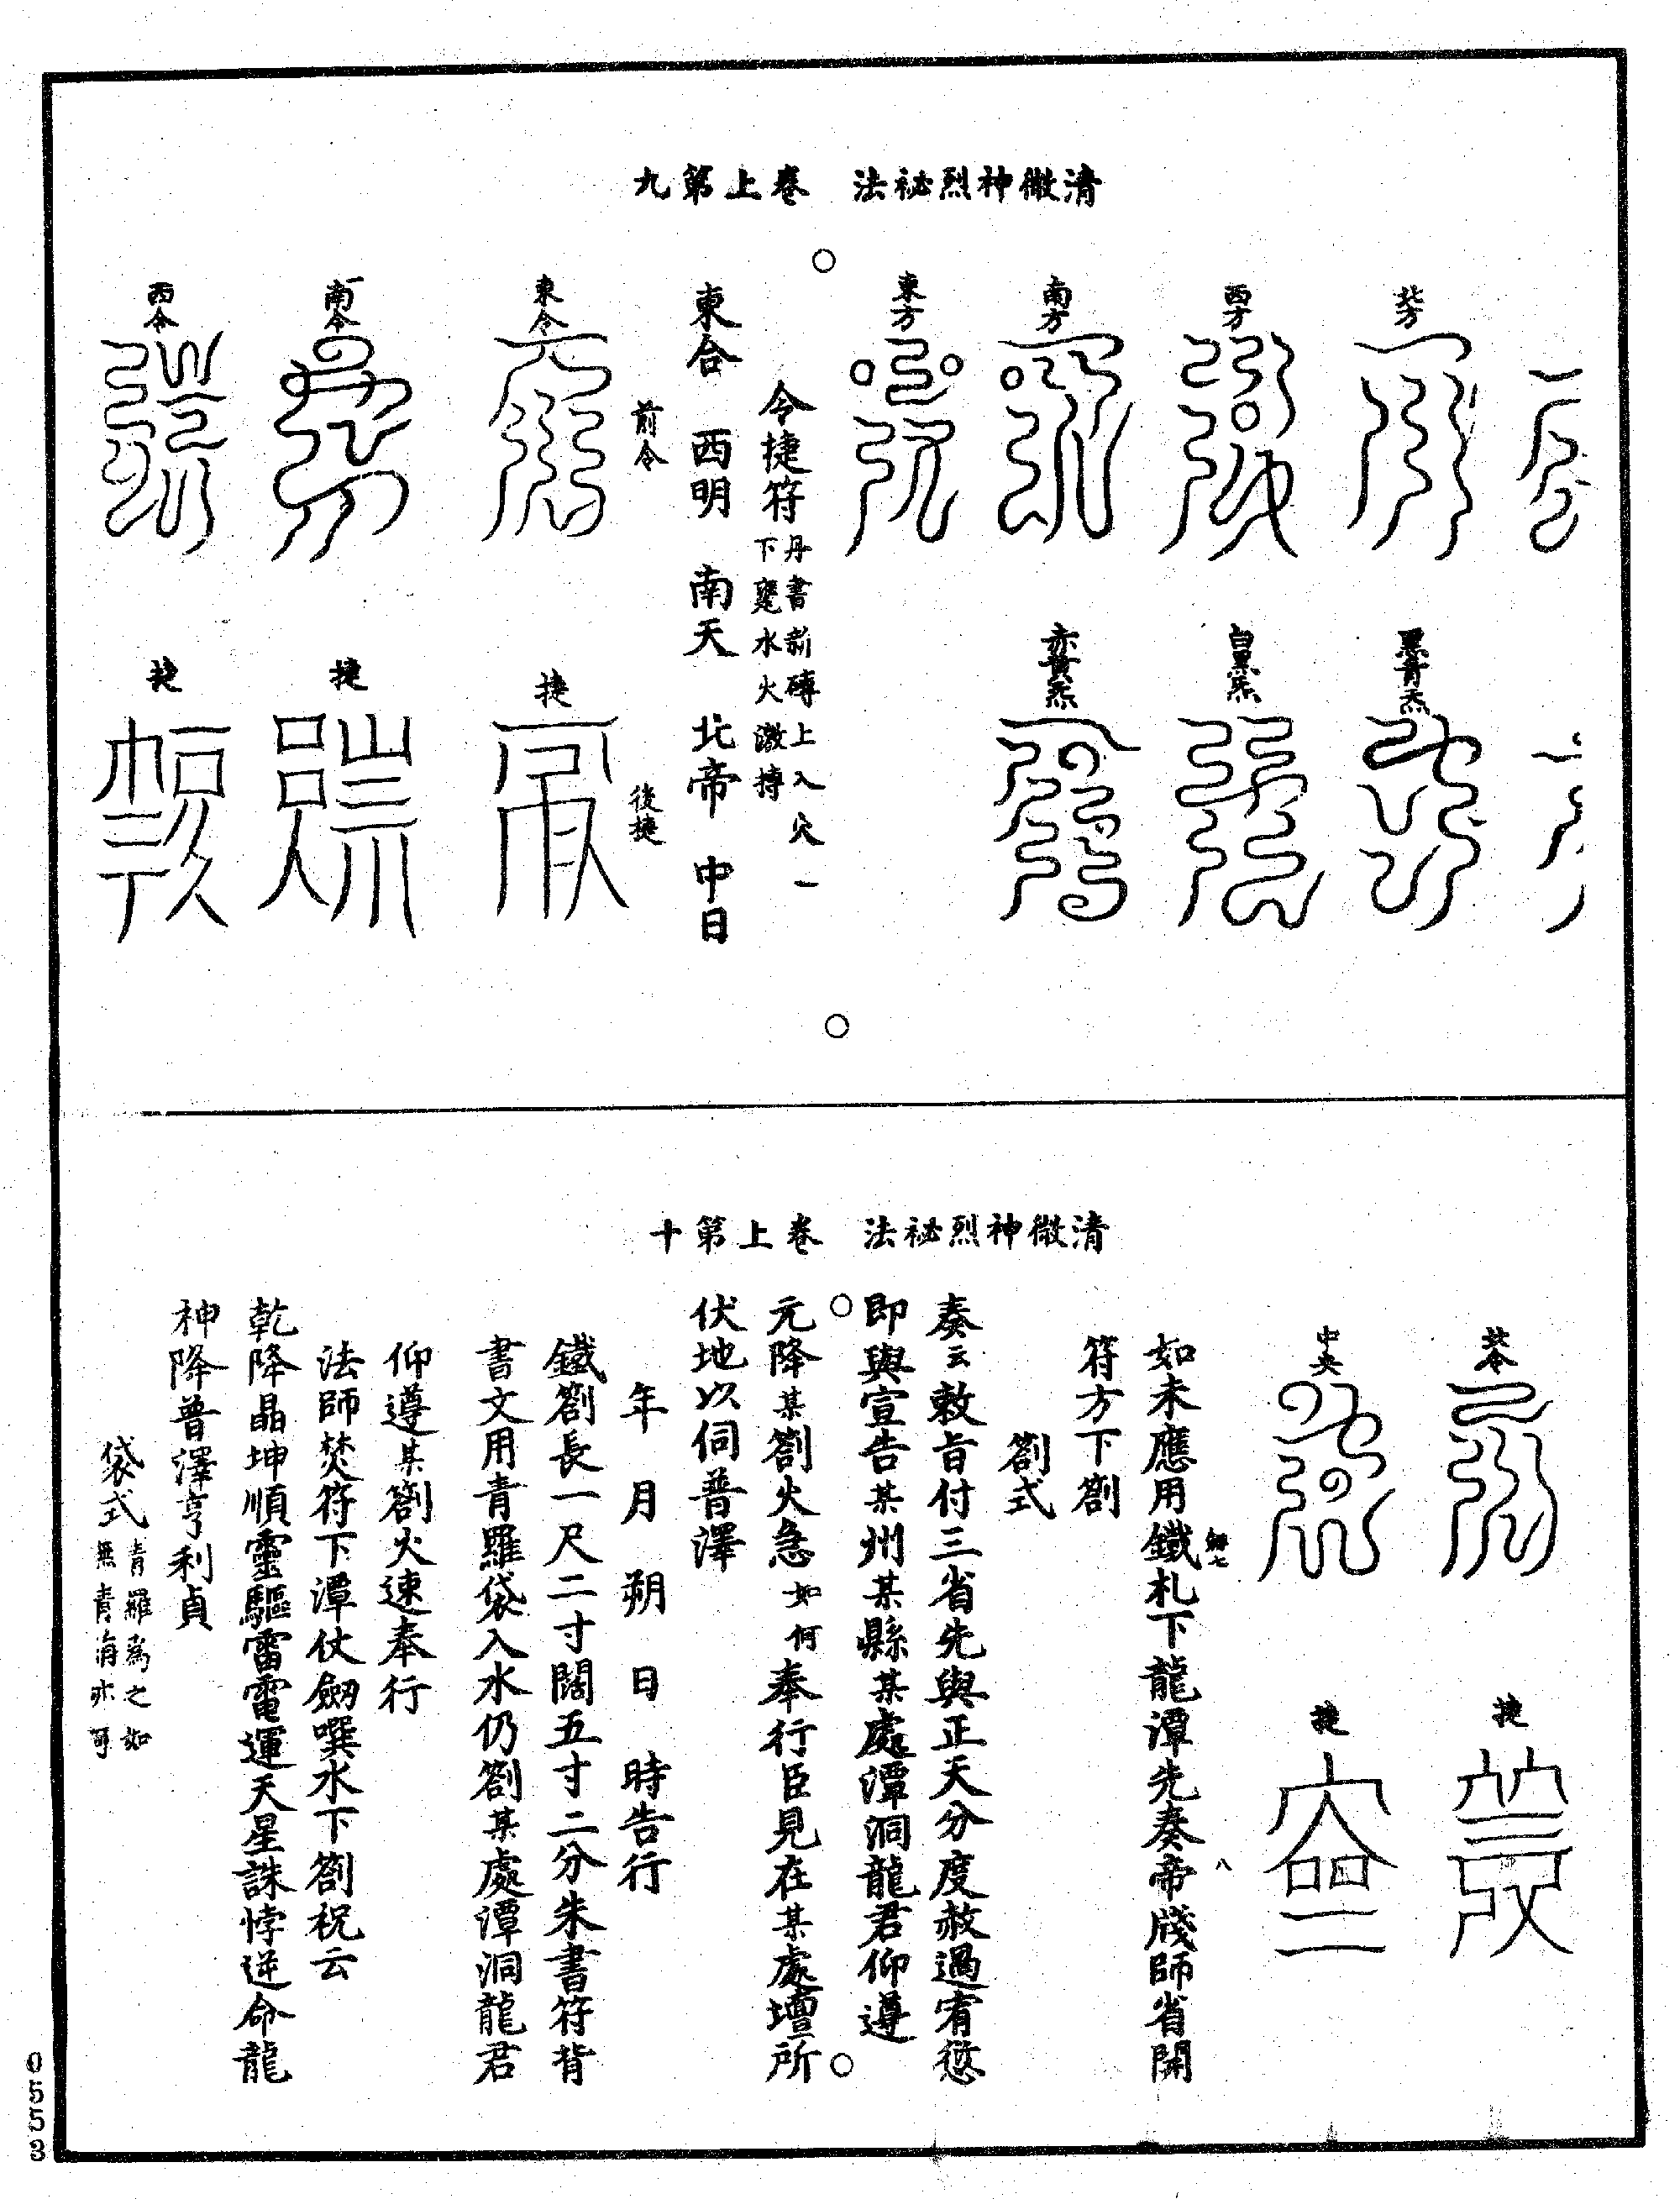 清微神烈祕法　卷上第九
北方
黑青炁
西方
白黑炁
南方
赤黃炁
東方
令捷符丹書新磚上入穴一
下甕水火激搏
東合　西明　南天　北帝　中日
前令　後捷
東令　捷
南令　捷
西令　捷
清微神烈祕法　卷上第十
北令　捷
中央　捷
如未應用鐵札下龍潭先奏帝牋師省開
符方下劄
劄式
奏云敕旨付三省先與正天分度赦過宥愆
即與宣告某州某縣某處潭洞龍君仰遵
元降某劄火急如何奉行臣見在某處壇所
伏地以伺普澤
年　月　朔　日　時告行
鐵劄長一尺二寸闊五寸二分朱書符背
書文用青羅袋入水仍劄某處潭洞龍君
仰遵某劄火速奉行
法師焚符下潭仗劒噀水下劄祝云
乾降晶坤順靈驅雷電運天星誅悖逆命龍
神降普澤亨利貞
袋式青羅為之如
無青海亦可
0553